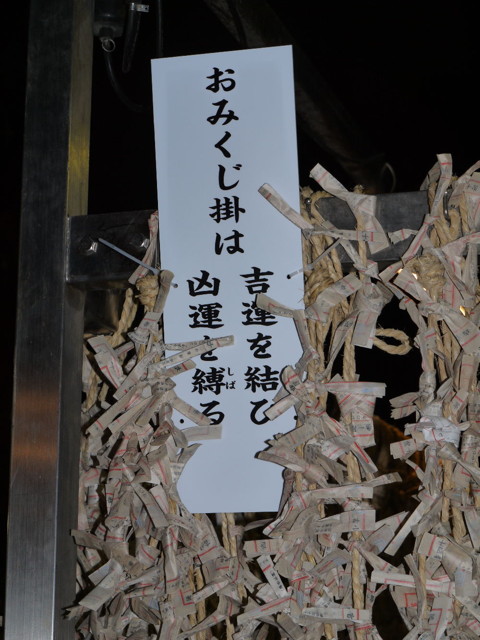 おみくじ掛は
吉運を結び
凶運を縛る
しば